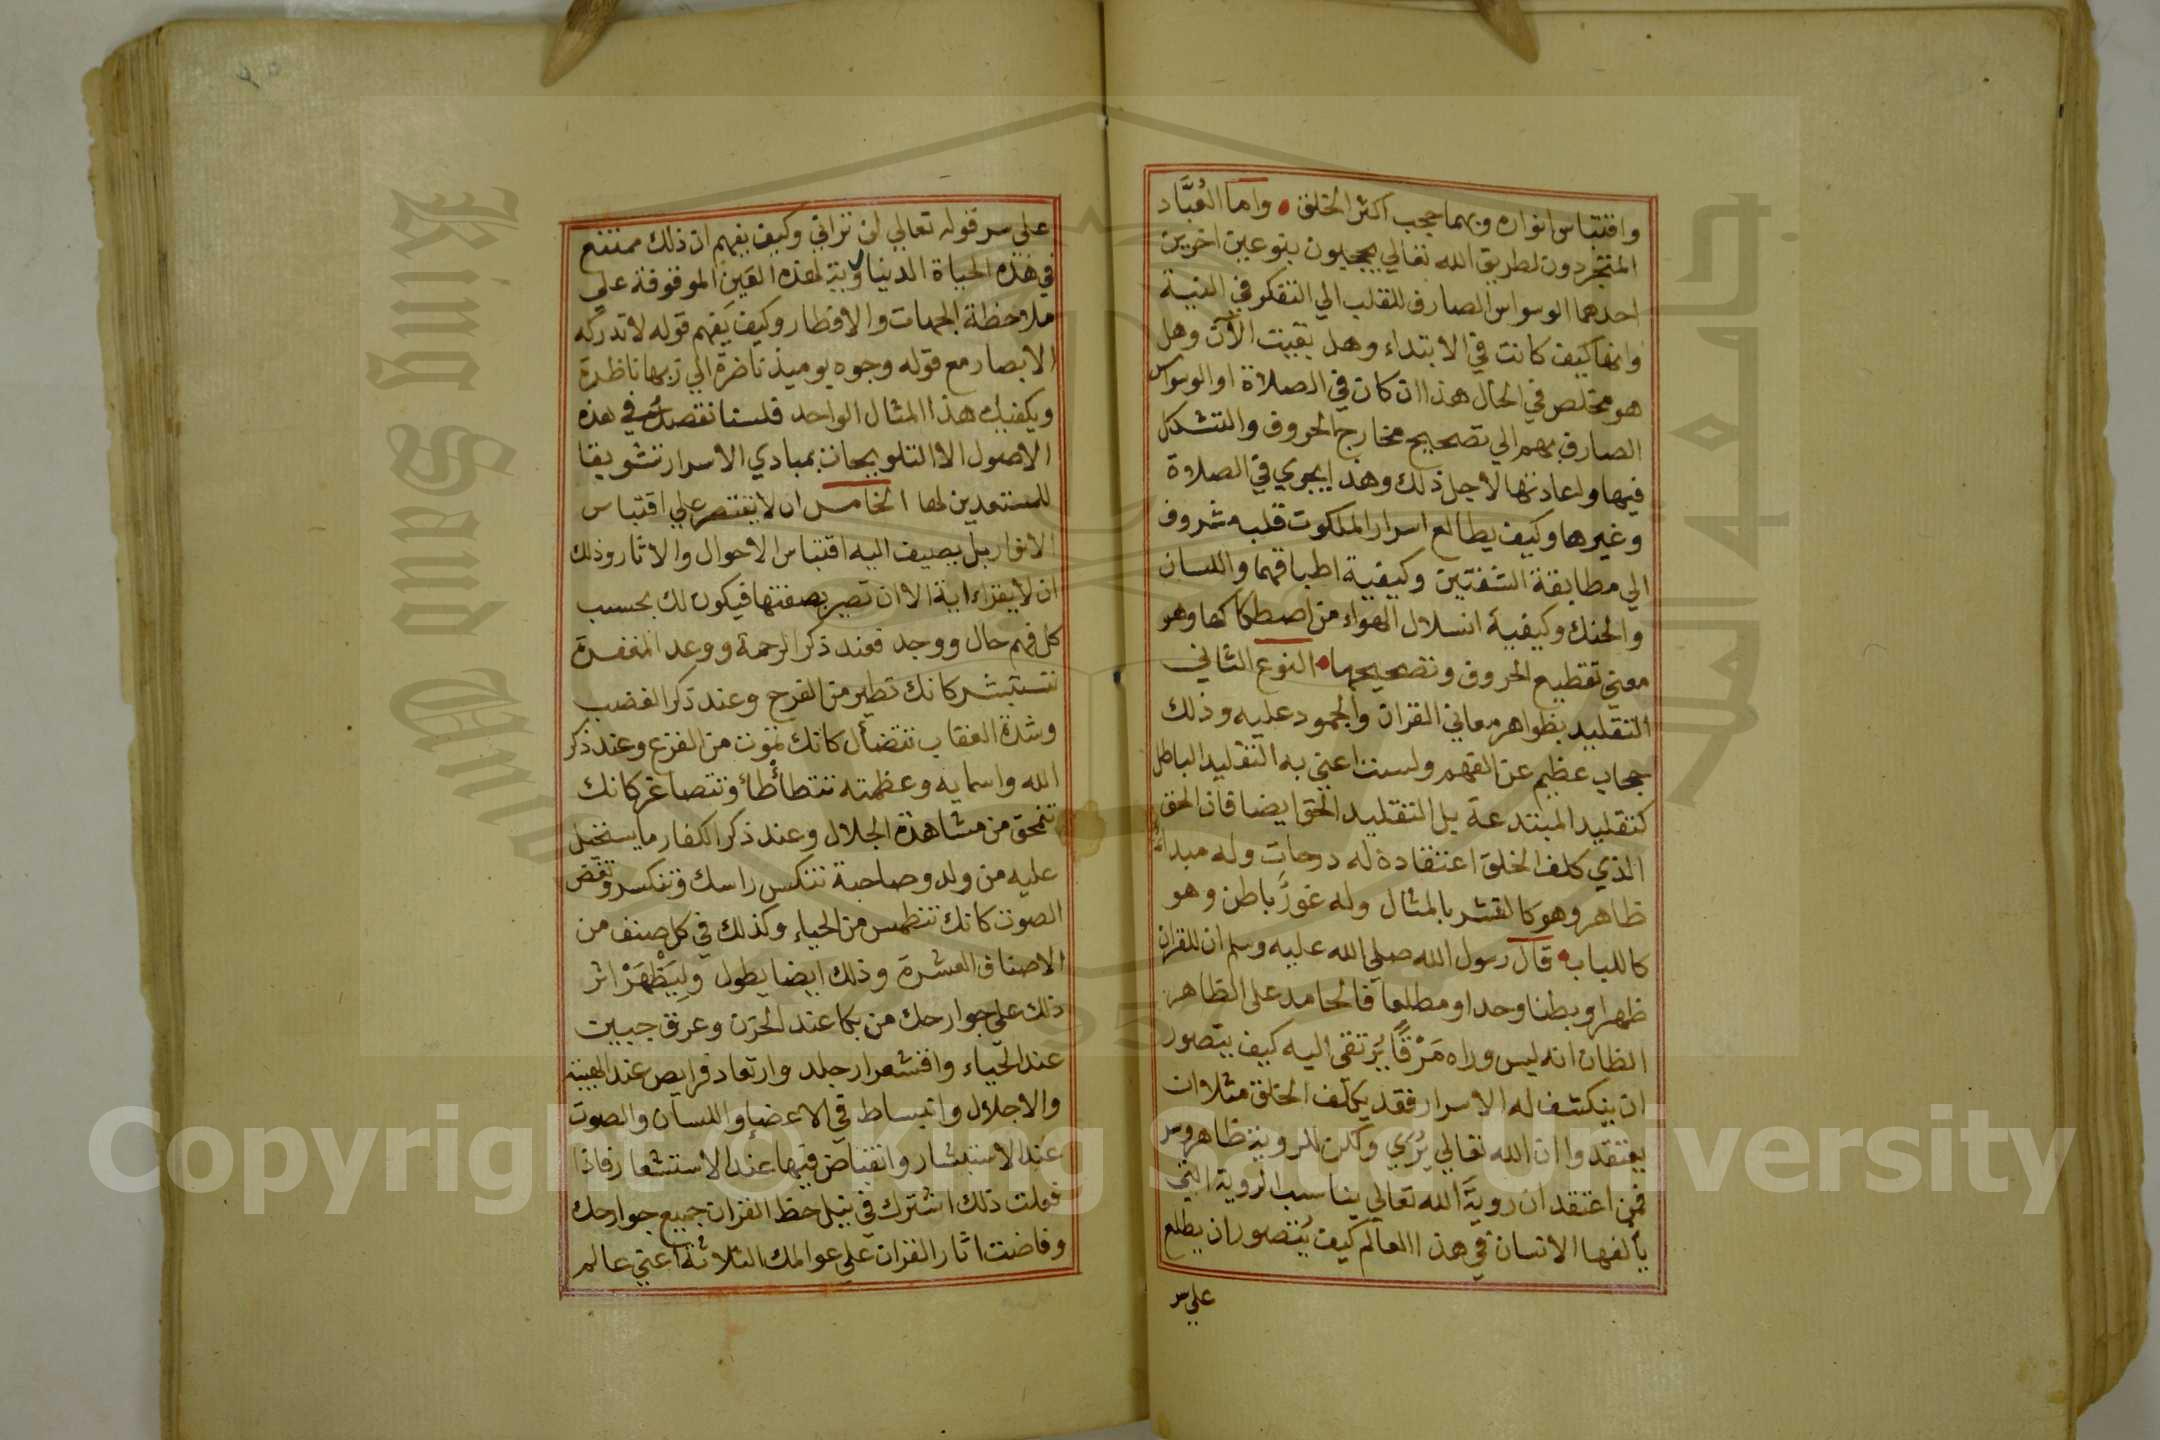 واقتباس انواره وبهما حجب اكثر الخلق واما العُبَّاد
المتجردون لطريق الله تعالي يحجبون بنوعين اخرين
احدهما الوسواس الصارف للقلب الي التفكر في النية
وانها كيف كانت في الابتداء وهل بقيت الآن وهل
هو مخلص في الحال هذا ان كان في الصلاة او الوسواس
الصارف بهم الي تصحيح مخارج الحروف والتشكك
فيها واعادتها لاجل ذلك وهذا يجري في الصلاة
وغيرها وكيف يطالع اسرار الملكوت قلبه مصروف
الي مطابقة الشفتين وكيفية اطباقهما واللسان
والحنك وكيفية انسلال الهواء من اصطكاكها وهو
معني تقطيع الحروف وتصحيحها النوع الثاني
التقليد بظواهر معاني القران والجمود عليه وذلك
حجاب عظيم عن الفهم ولست اعني به التقليد الباطل
كتقليد المبتدعة بل التقليد الحق ايضا فان الحق
الذي كلف الخلق اعتقاده له درجات وله مبدا
ظاهر وهو كالقشر بالمثال وله غورٌ باطن وهو
كاللباب قال رسول الله صلي الله عليه وسلم ان للقران
ظهرا وبطنا وحدا ومطلعا فالجامد علي الظاهر
الظان انه ليس وراه مَرْقًا يُرتقي اليه كيف يتصور
ان ينكشف له الاسرار فقد يكلف الخلق مثلا ان
يعتقدوا ان الله تعالي يُرَي ولكن للروية ظاهر وسر
فمن اعتقد ان رويةَ الله تعالي يناسب الروية التي
يألفها الانسان في هذا العالم كيف يُتصور ان يطلع
علي سر
علي سر قوله تعالي لن تراني وكيف يفهم ان ذلك ممتنع
في هذه الحياة الدنيا وبية لهذه العين الموقوفة علي
ملاحظة الجهات والاقطار وكيف يفهم قوله لا تدركه
الابصار مع قوله وجوه يوميذ ناضرة الي ربها ناظرة
ويكفيك هذا المثال الواحد فلسنا نقصدك في هذه
الاصول الا التلويحات بمبادي الاسرار تشويقا
للمستعدين لها الخامس ان لا يقتصر علي اقتباس
الانوار بل يضيف اليه اقتباس الاحوال والاثار وذلك
ان لا يقراء اية الا ان تصير بصفتها فيكون لك بحسب
كل فهم حال ووجد فعند ذكر الرحمة ووعد المغفرة
تستبشر كانك تطير من الفرح وعند ذكر الغضب
وشدة العقاب تتضأل كانك تموت من الفزع وعند ذكر
الله واسمايه وعظمته تتطأطأ وتتصاغر كانك
تنمحق من مشاهدة الجلال وعند ذكر الكفار ما يستحيل
عليه من ولد وصاحبة تنكس راسك وتنكسر وتغض
الصوت كانك تنطمس من الحياء وكذلك في كل صنف من
الاصناف العشرة وذلك ايضا يطول وليَظْهَرْ اثر
ذلك علي جوارحك من بكا عند الحزن وعرق جبين
عند الحياء واقشعرار جلد وارتعاد فرايص عند الهيبة
والاجلال وانبساط في الاعضا واللسان والصوت
عند الاستبشار وانقباض فيها عند الاستشعار فاذا
فعلت ذلك اشترك في نيل حظ القران جميع جوارحك
وفاضت اثار القران علي عوالمك الثلاثة اعني عالم
King Saud University
جامعة الملك سعود
1957
Copyright © King Saud University